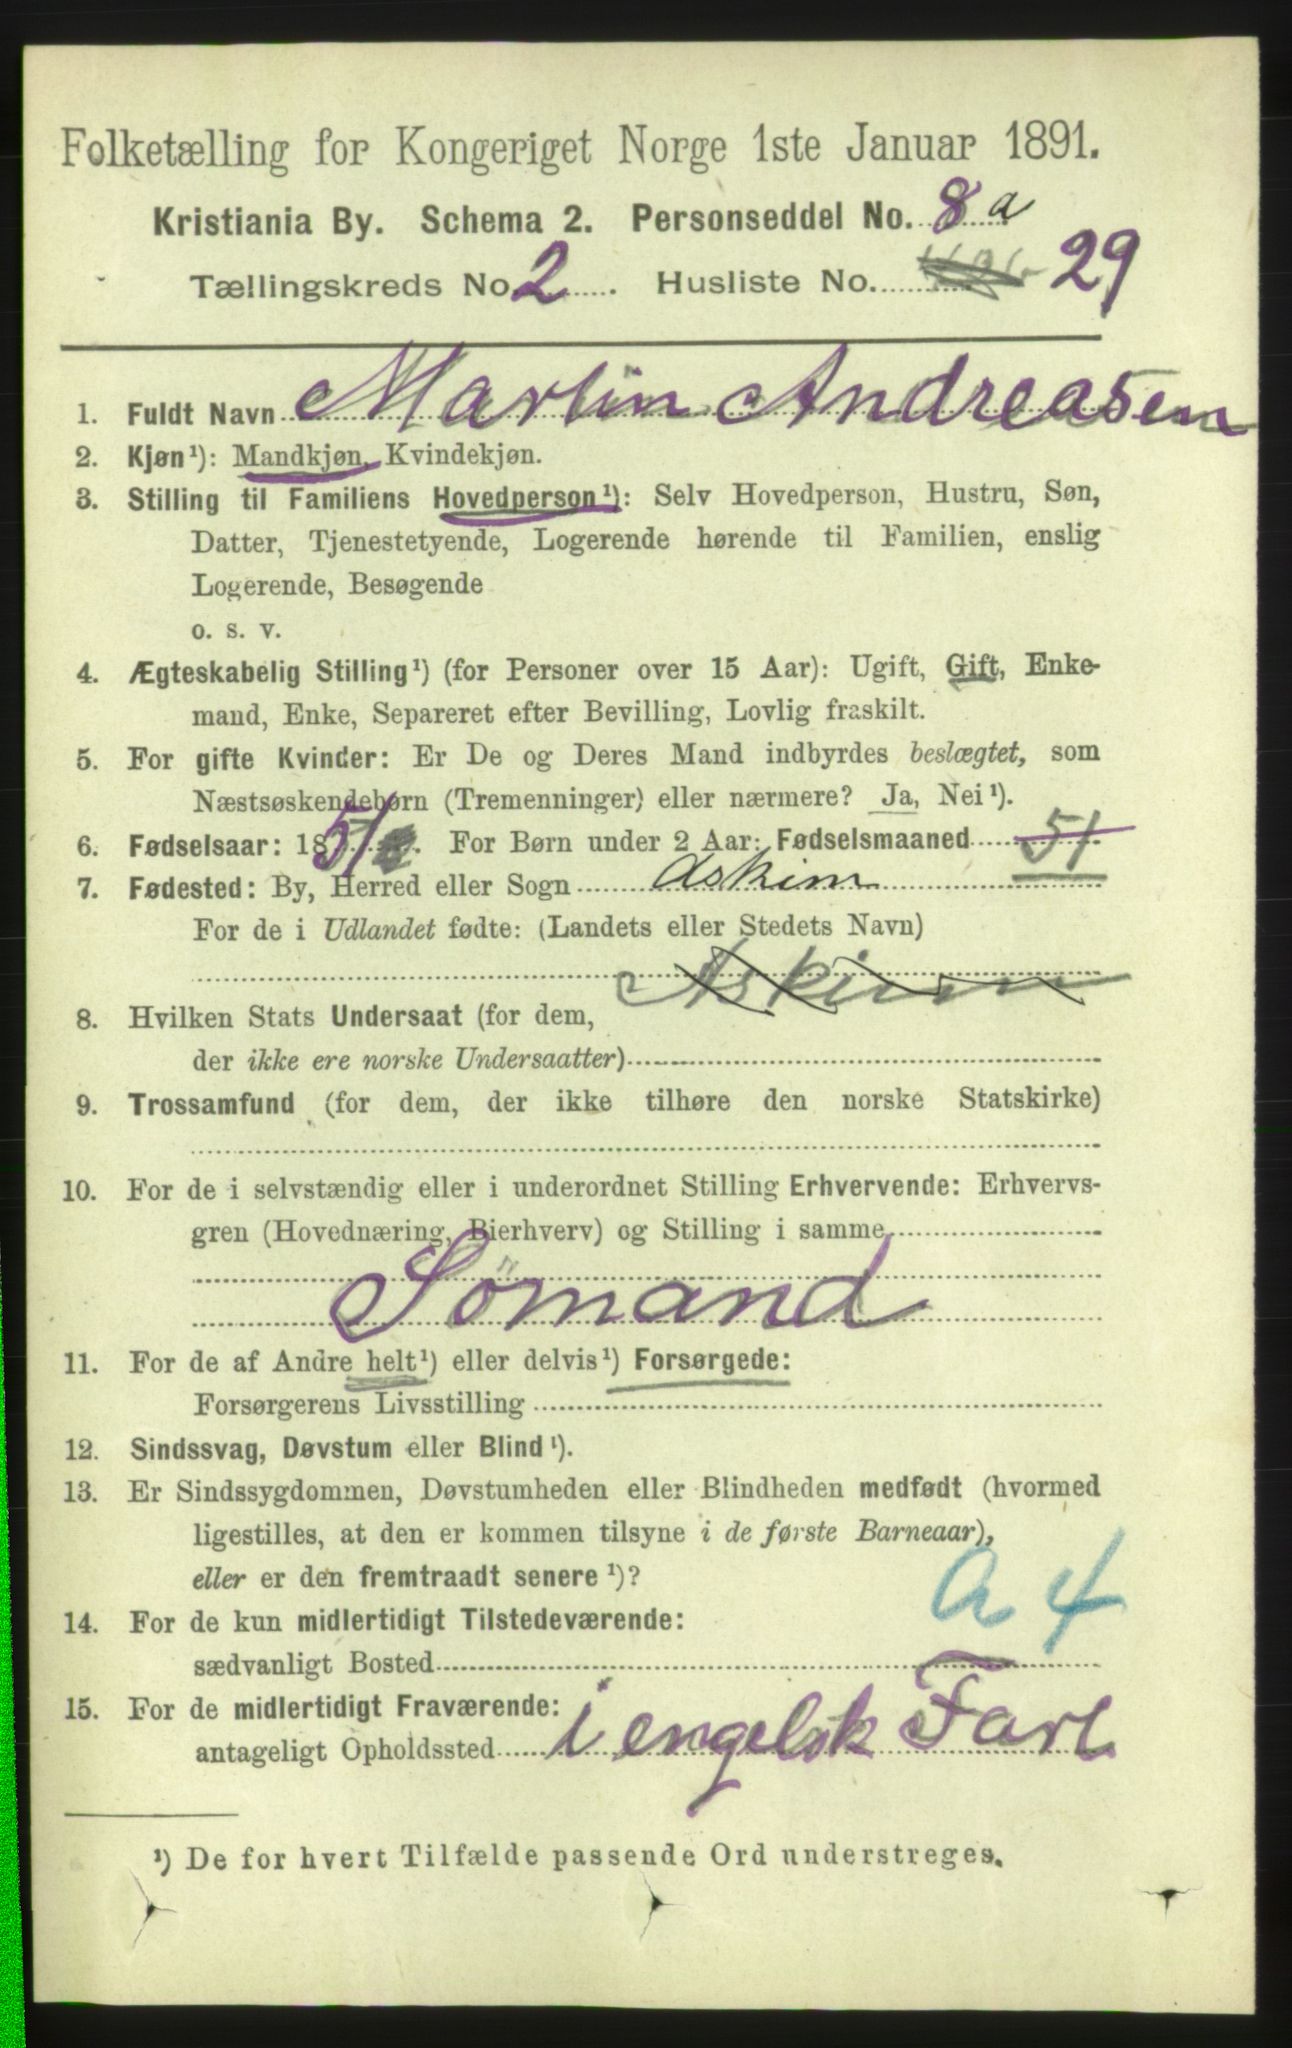 Folketælling for Kongeriget Norge 1ste Januar 1891.
Kristiania By. Schema 2. Personseddel No. 8 a
Tællingskreds No. 2. Husliste No. 29
1. Fuldt Navn Martin Andreasen
2. Kjøn¹): Mandkjøn, Kvindekjøn.
3. Stilling til Familiens Hovedperson¹): Selv Hovedperson, Hustru, Søn,
Datter, Tjenestetyende, Logerende hørende til Familien, enslig
Logerende, Besøgende
o. s. v.
4. Ægteskabelig Stilling¹) (for Personer over 15 Aar): Ugift, Gift, Enke-
mand, Enke, Separeret efter Bevilling, Lovlig fraskilt.
5. For gifte Kvinder: Er De og Deres Mand indbyrdes beslægtet, som
Næstsøskendebørn (Tremenninger) eller nærmere? Ja, Nei¹).
6. Fødselsaar: 1851. For Børn under 2 Aar: Fødselsmaaned 51
7. Fødested: By, Herred eller Sogn Askim
For de i Udlandet fødte: (Landets eller Stedets Navn)
Askim
8. Hvilken Stats Undersaat (for dem,
der ikke ere norske Undersaatter)
9. Trossamfund (for dem, der ikke tilhøre den norske Statskirke)
10. For de i selvstændig eller i underordnet Stilling Erhvervende: Erhvervs-
gren (Hovednæring, Bierhverv) og Stilling i samme
Sømand
11. For de af Andre helt¹) eller delvis¹) Forsørgede:
Forsørgerens Livsstilling
12. Sindssvag, Døvstum eller Blind¹).
13. Er Sindssygdommen, Døvstumheden eller Blindheden medfødt (hvormed
ligestilles, at den er kommen tilsyne i de første Barneaar),
eller er den fremtraadt senere¹)?
a 4
14. For de kun midlertidigt Tilstedeværende:
sædvanligt Bosted
15. For de midlertidigt Fraværende:
antageligt Opholdssted i engelsk Fart
¹) De for hvert Tilfælde passende Ord understreges.